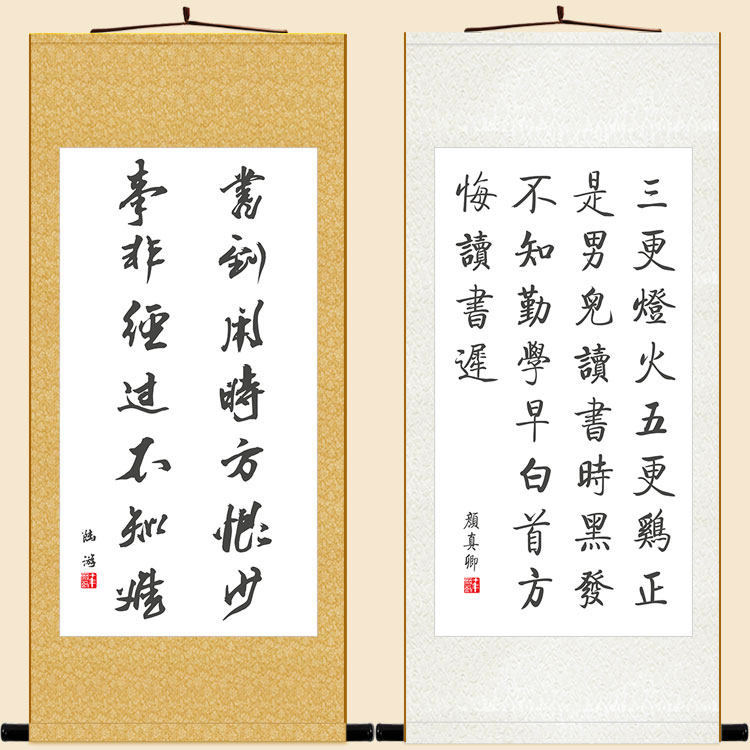 三更燈火五更鷄正
是男兒讀書時黑發
不知勤學早白首方
悔讀書遲
顏真卿
書到用時方恨少
事非經過不知難
陸游